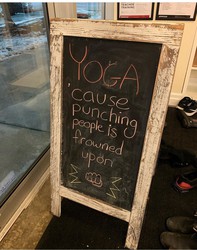 YOGA
'cause
punching
people is
frowned
upon